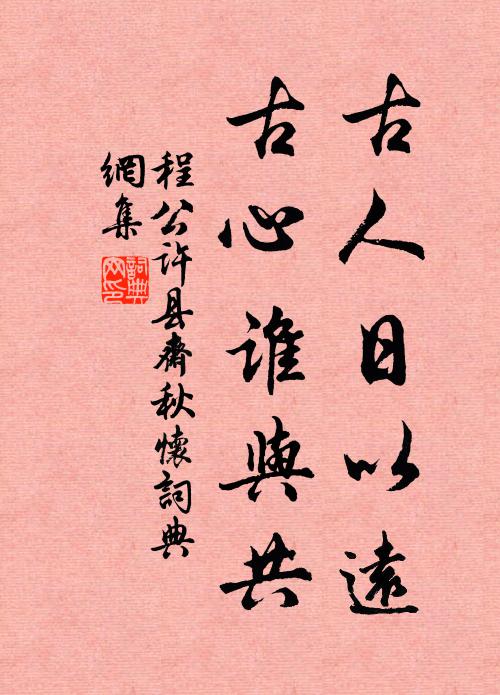 古人日以遠
古心誰與共
程公许县齋秋懷詞典
網集
詞典
网印